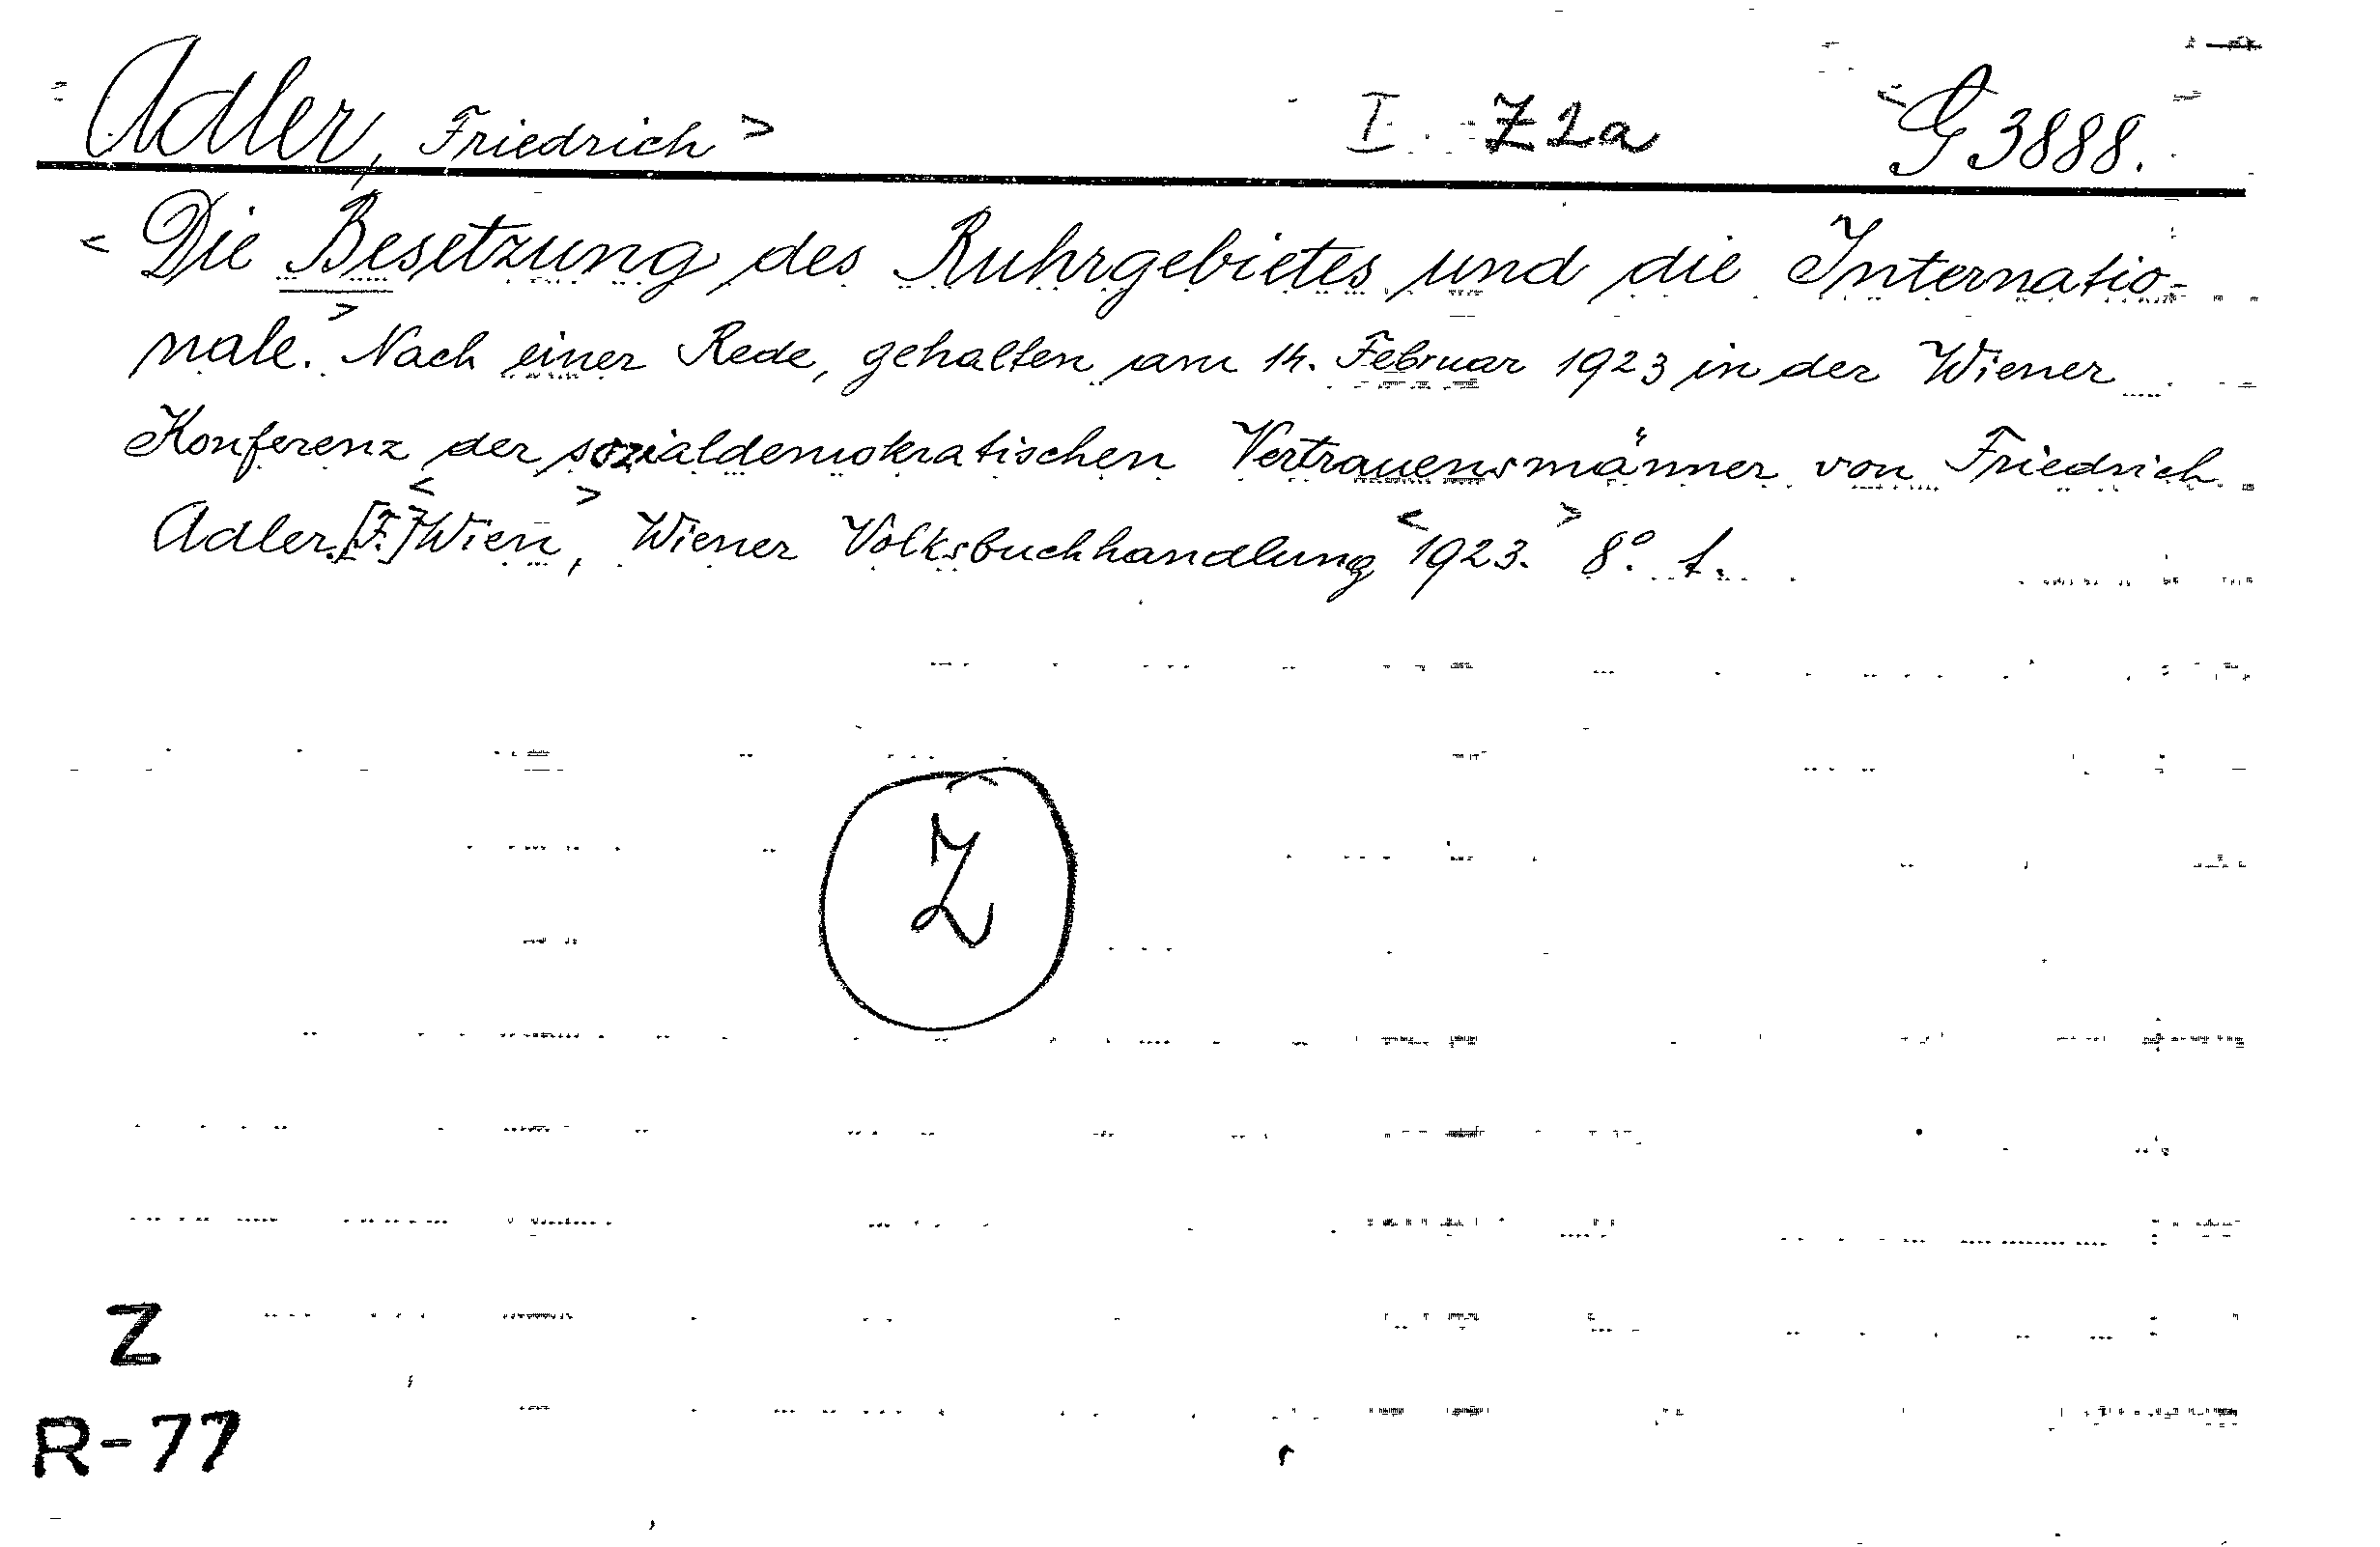 Adler, Friedrich > I Z2a < G 3888.
< Die Besetzung des Ruhrgebietes und die Internatio-
nale. > Nach einer Rede, gehalten am 14. Februar 1923 in der Wiener
Konferenz der sozialdemokratischen Vertrauensmänner von Friedrich
Adler. [F.] < Wien >, Wiener Volksbuchhandlung < 1923. > 8°. 1.
Z
Z
R-77